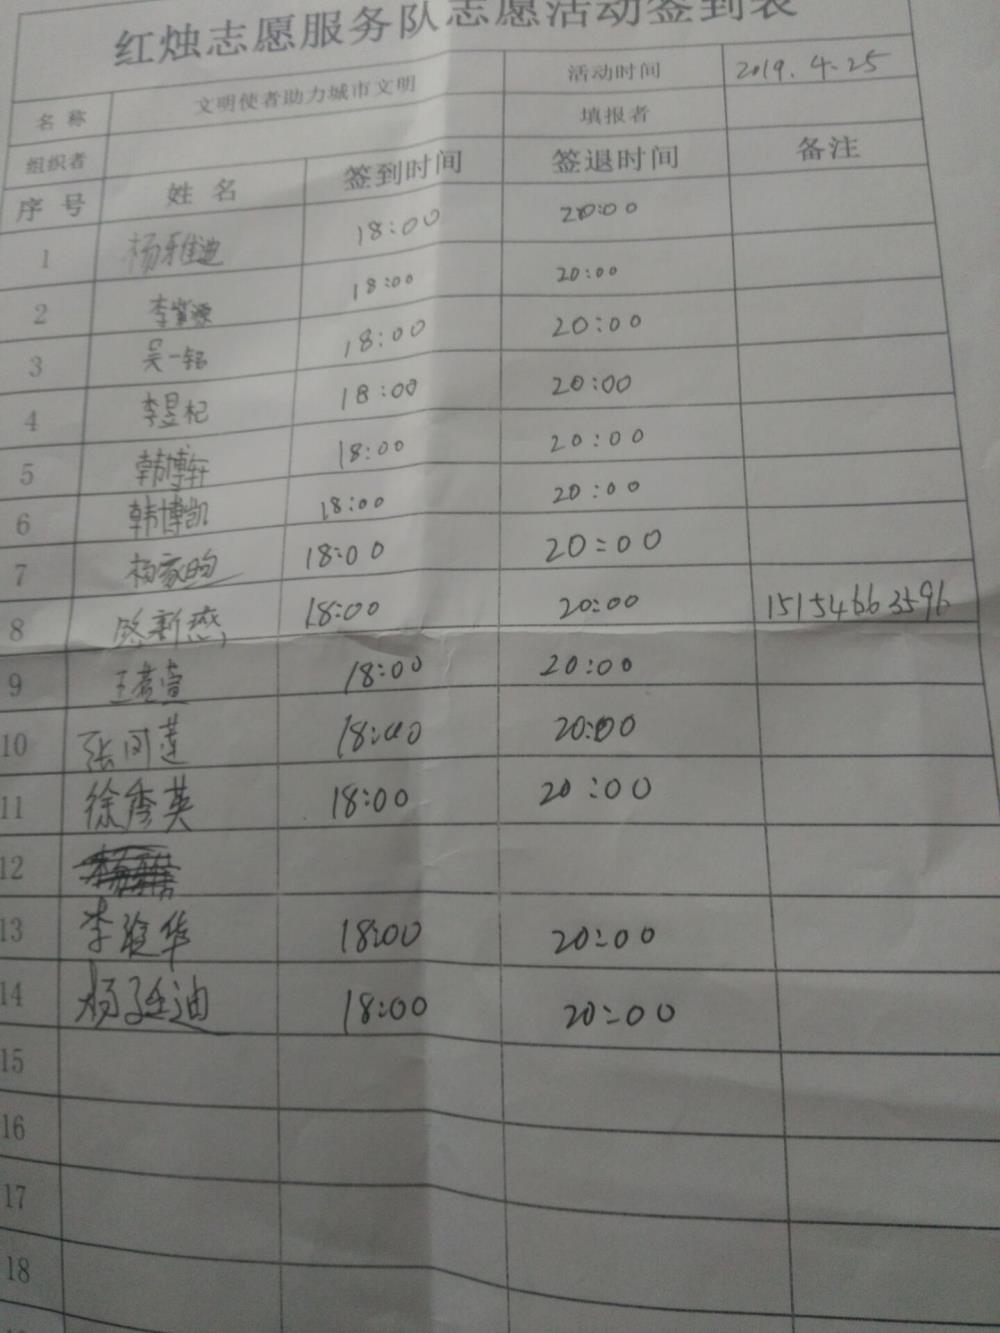 红烛志愿服务队志愿活动签到表
名称 文明使者助力城市文明 活动时间 2019.4.25
组织者 填报者
序号 姓名 签到时间 签退时间 备注
1 杨雅迪 18:00 20:00
2 李 源 18:00 20:00
3 吴一铭 18:00 20:00
4 李昱杞 18:00 20:00
5 韩博轩 18:00 20:00
6 韩博凯 18:00 20:00
7 杨家昀 18:00 20:00
8 新燕 18:00 20:00 15154663596
9 王彦萱 18:00 20:00
10 张同莲 18:00 20:00
11 徐秀英 18:00 20:00
12
13 李 华 18:00 20:00
14 杨廷迪 18:00 20:00
15
16
17
18